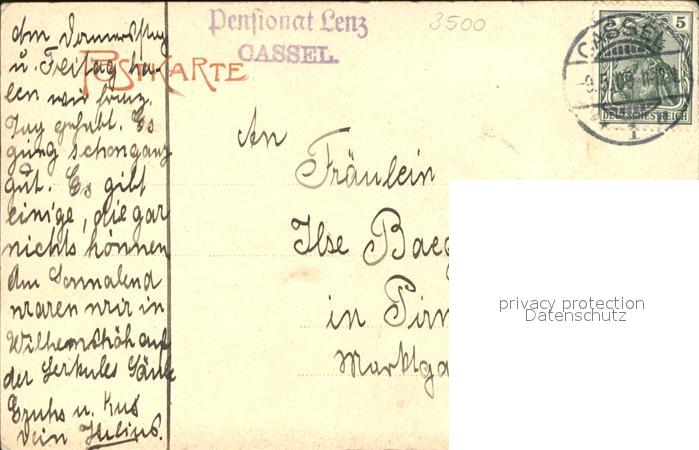 Am Donnerstag
u. Freitag ha-
ben wir franz.
Tag gehabt. Es
ging schon ganz
gut. Es gibt
einige, die gar
nichts können
Am Sonnabend
waren wir in
Wilhemshöh auf
der Herkules Säule
Gruß u. Kus
Dein
POSTKARTE
Pensionat Lenz
CASSEL.
3500
5
CASSEL
DEUTSCHES REICH
An
Fräulein
Ilse Baeg
in Pirn
Marktga
privacy protection
Datenschutz